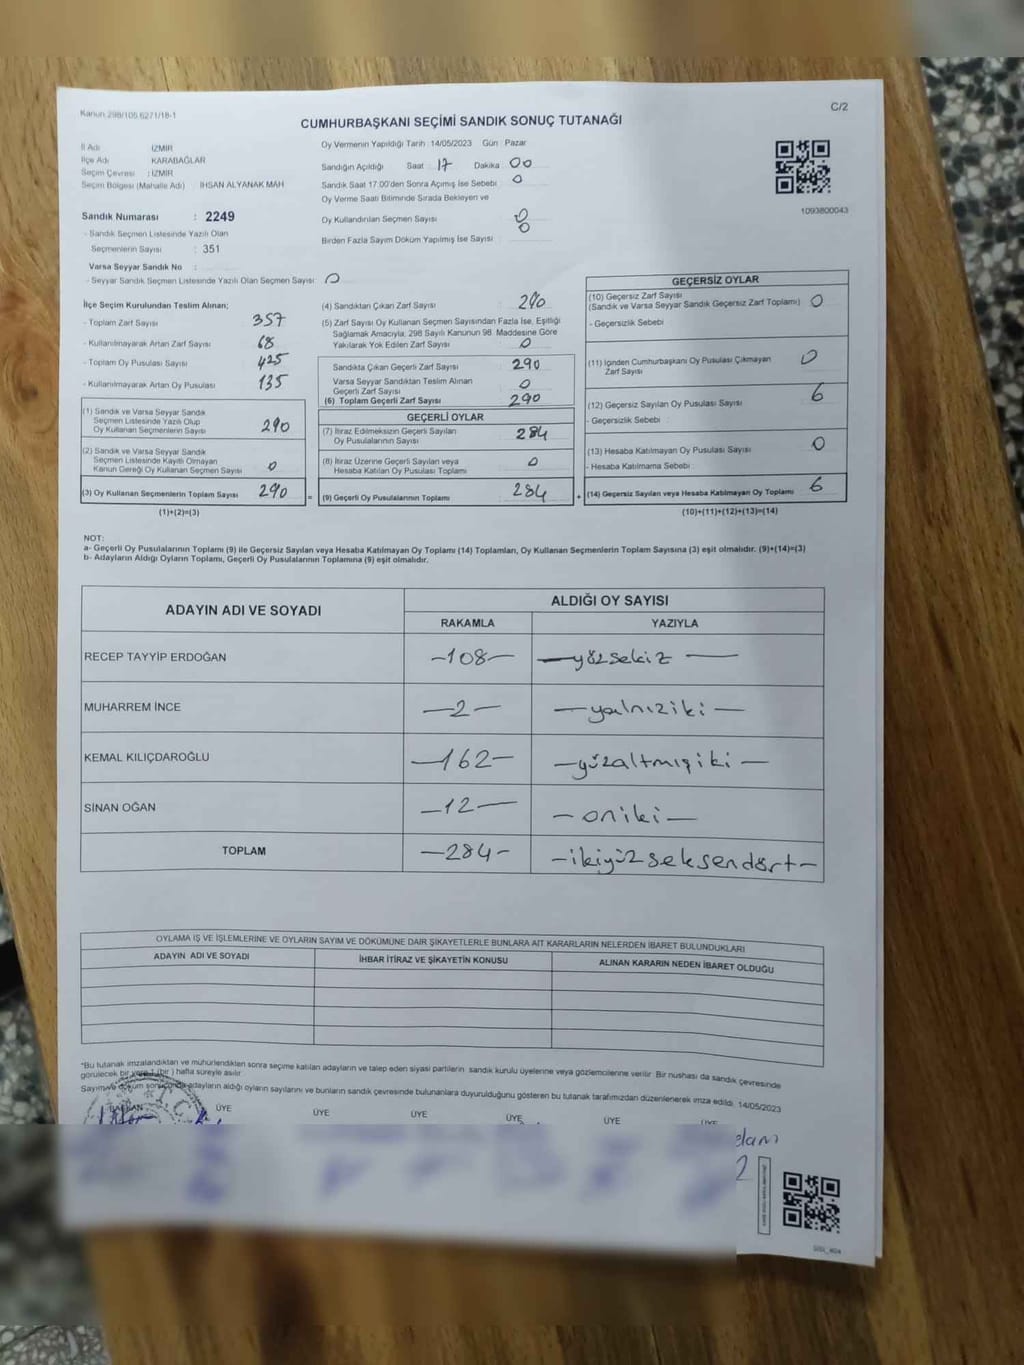 Kanun 298/105 6271/18-1
C/2
CUMHURBAŞKANI SEÇİMİ SANDIK SONUÇ TUTANAĞI
İl Adı İZMİR
İlçe Adı KARABAĞLAR
Seçim Çevresi : İZMİR
Seçim Bölgesi (Mahalle Adı) İHSAN ALYANAK MAH
Sandık Numarası : 2249
- Sandık Seçmen Listesinde Yazılı Olan
Seçmenlerin Sayısı : 351
Varsa Seyyar Sandık No :
- Seyyar Sandık Seçmen Listesinde Yazılı Olan Seçmen Sayısı : 0
Oy Vermenin Yapıldığı Tarih : 14/05/2023 Gün : Pazar
Sandığın Açıldığı Saat : 17 Dakika : 00
Sandık Saat 17:00'den Sonra Açımış İse Sebebi : 0
Oy Verme Saati Bitiminde Sırada Bekleyen ve
Oy Kullandırılan Seçmen Sayısı : 0
Birden Fazla Sayım Döküm Yapılmış İse Sayısı : 0
1093800043
İlçe Seçim Kurulundan Teslim Alınan;
- Toplam Zarf Sayısı 357
- Kullanılmayarak Artan Zarf Sayısı 68
- Toplam Oy Pusulası Sayısı 425
- Kullanılmayarak Artan Oy Pusulası 135
(1) Sandık ve Varsa Seyyar Sandık
Seçmen Listesinde Yazılı Olup
Oy Kullanan Seçmenlerin Sayısı 290
(2) Sandık ve Varsa Seyyar Sandık
Seçmen Listesinde Kayıtlı Olmayan
Kanun Gereği Oy Kullanan Seçmen Sayısı 0
(3) Oy Kullanan Seçmenlerin Toplam Sayısı 290
(1)+(2)=(3)
(4) Sandıktan Çıkan Zarf Sayısı : 290
(5) Zarf Sayısı Oy Kullanan Seçmen Sayısından Fazla İse, Eşitliği
Sağlamak Amacıyla, 298 Sayılı Kanunun 98. Maddesine Göre
Yakılarak Yok Edilen Zarf Sayısı : 0
Sandıkta Çıkan Geçerli Zarf Sayısı : 290
Varsa Seyyar Sandıktan Teslim Alınan
Geçerli Zarf Sayısı : 0
(6) Toplam Geçerli Zarf Sayısı : 290
GEÇERLİ OYLAR
(7) İtiraz Edilmeksizin Geçerli Sayılan
Oy Pusulalarının Sayısı : 284
(8) İtiraz Üzerine Geçerli Sayılan veya
Hesaba Katılan Oy Pusulalarının Toplamı 0
= (9) Geçerli Oy Pusulalarının Toplamı 284
GEÇERSİZ OYLAR
(10) Geçersiz Zarf Sayısı
(Sandık ve Varsa Seyyar Sandık Geçersiz Zarf Toplamı) 0
- Geçersizlik Sebebi
(11) İçinden Cumhurbaşkanı Oy Pusulası Çıkmayan
Zarf Sayısı 0
(12) Geçersiz Sayılan Oy Pusulası Sayısı 6
- Geçersizlik Sebebi :
(13) Hesaba Katılmayan Oy Pusulası Sayısı 0
- Hesaba Katılmama Sebebi
+ (14) Geçersiz Sayılan veya Hesaba Katılmayan Oy Toplamı 6
(10)+(11)+(12)+(13)=(14)
NOT:
a- Geçerli Oy Pusulalarının Toplamı (9) ile Geçersiz Sayılan veya Hesaba Katılmayan Oy Toplamı (14) Toplamları, Oy Kullanan Seçmenlerin Toplam Sayısına (3) eşit olmalıdır. (9)+(14)=(3)
b- Adayların Aldığı Oyların Toplamı, Geçerli Oy Pusulalarının Toplamına (9) eşit olmalıdır.
ADAYIN ADI VE SOYADI ALDIĞI OY SAYISI
RAKAMLA YAZIYLA
RECEP TAYYİP ERDOĞAN -108- -yüzsekiz-
MUHARREM İNCE -2- -yalnıziki-
KEMAL KILIÇDAROĞLU -162- -yüzaltmışiki-
SİNAN OĞAN -12- -oniki-
TOPLAM -284- -ikiyüzseksendört-
OYLAMA İŞ VE İŞLEMLERİNE VE OYLARIN SAYIM VE DÖKÜMÜNE DAİR ŞİKAYETLERLE BUNLARA AİT KARARLARIN NELERDEN İBARET BULUNDUKLARI
ADAYIN ADI VE SOYADI İHBAR İTİRAZ VE ŞİKAYETİN KONUSU ALINAN KARARIN NEDEN İBARET OLDUĞU
*Bu tutanak imzalandıktan ve mühürlendikten sonra seçime katılan adayların ve talep eden siyasi partilerin sandık kurulu üyelerine veya gözlemcilerine verilir. Bir nüshası da sandık çevresinde
görülecek bir yere 1 (bir) hafta süreyle asılır.
Sayım ve döküm sonucunda adayların aldığı oyların sayılarını ve bunların sandık çevresinde bulunanlara duyurulduğunu gösteren bu tutanak tarafımızdan düzenlenerek imza edildi. 14/05/2023
BAŞKAN ÜYE ÜYE ÜYE ÜYE ÜYE ÜYE